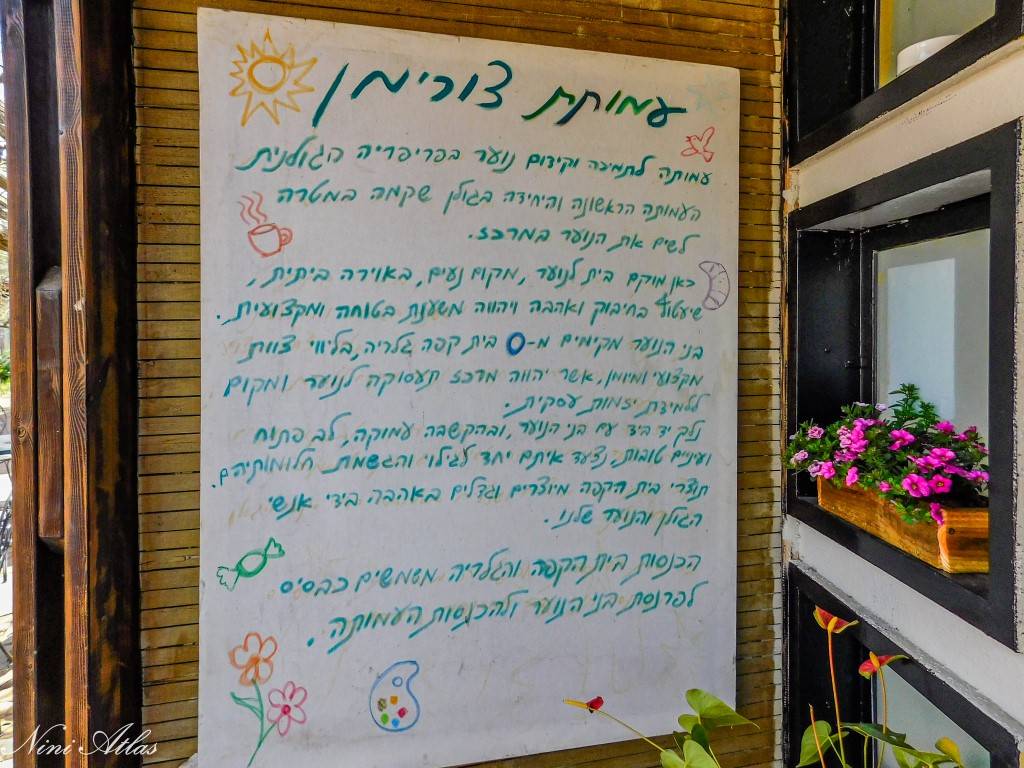 עמותת צורימן
עמותה לתמיכה וקידום נוער בפריפריה הגולנית
העמותה הראשונה והיחידה בגולן שקמה במטרה
לשים את הנוער במרכז.
כאן מוקם בית לנוער, מקום נעים, באוירה ביתית,
שיעטוף בחיבוק ואהבה ויהווה משענת בטוחה ומקצועית.
בני הנוער מקימים מ-0 בית קפה גלריה, בליווי צוות
מקצועי ומיומן, אשר יהווה מרכז תעסוקה לנוער ומקום
ללמידת יזמות עסקית.
נלך יד ביד עם בני הנוער, ובהקשבה עמוקה, לב פתוח
ועינים טובות, נצעד איתם יחד לגילוי והגשמת חלומותיהם.
תוצרי בית הקפה מיוצרים וגדלים באהבה בידי אנשי
הגולן והנוער שלנו.
הכנסות בית הקפה והגלריה משמשים כבסיס
לפרנסת בני הנוער ולהכנסות העמותה.
Nini Atlas